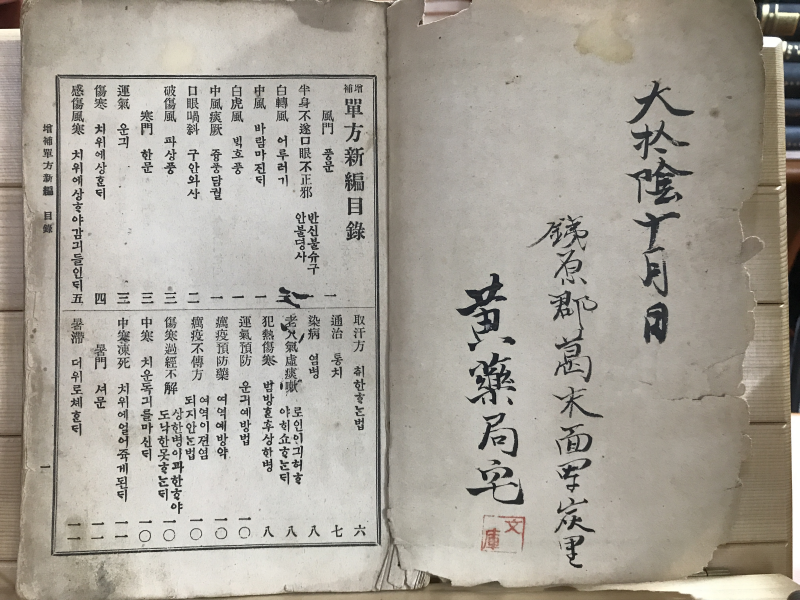 大於陰十月日
鐵原郡葛末面軍炭里
黃藥局宅
文庫
增補單方新編目錄
風門 풍문
半身不遂口眼不正邪 반신불슈구안불뎡사 一
白轉風 어루러기 一
中風 바람마진ᄃᆡ 一
白虎風 ᄇᆡᆨ호풍 一
中風痰厥 즁풍담궐 一
口眼喎斜 구안와사 二
破傷風 파상풍 三
寒門 한문 三
運氣 운긔 三
傷寒 치위에상ᄒᆞᆫᄃᆡ 四
感傷風寒 치위에상ᄒᆞ야감긔들인ᄃᆡ 五
取汗方 취한ᄒᆞᄂᆞᆫ법 六
通治 통치 七
染病 염병 八
老人氣虛痰嗽 로인이긔허ᄒᆞ야ᄒᆡ쇼ᄒᆞᄂᆞᆫᄃᆡ 八
犯熱傷寒 밤방ᄒᆞᆫ후상한병 八
運氣預防 운긔예방법 一〇
癘疫預防藥 여역예방약 一〇
癘疫不傳方 여역이젼염되지안ᄂᆞᆫ법 一〇
傷寒過經不解 상한병이과한ᄒᆞ야도낙한못ᄒᆞᄂᆞᆫᄃᆡ 一〇
中寒 치운독긔를마신ᄃᆡ 一〇
中寒凍死 치위에얼어쥭게된ᄃᆡ 一一
暑門 셔문 一一
暑滯 더위로체ᄒᆞᆫᄃᆡ 一一
增補單方新編 目錄 一